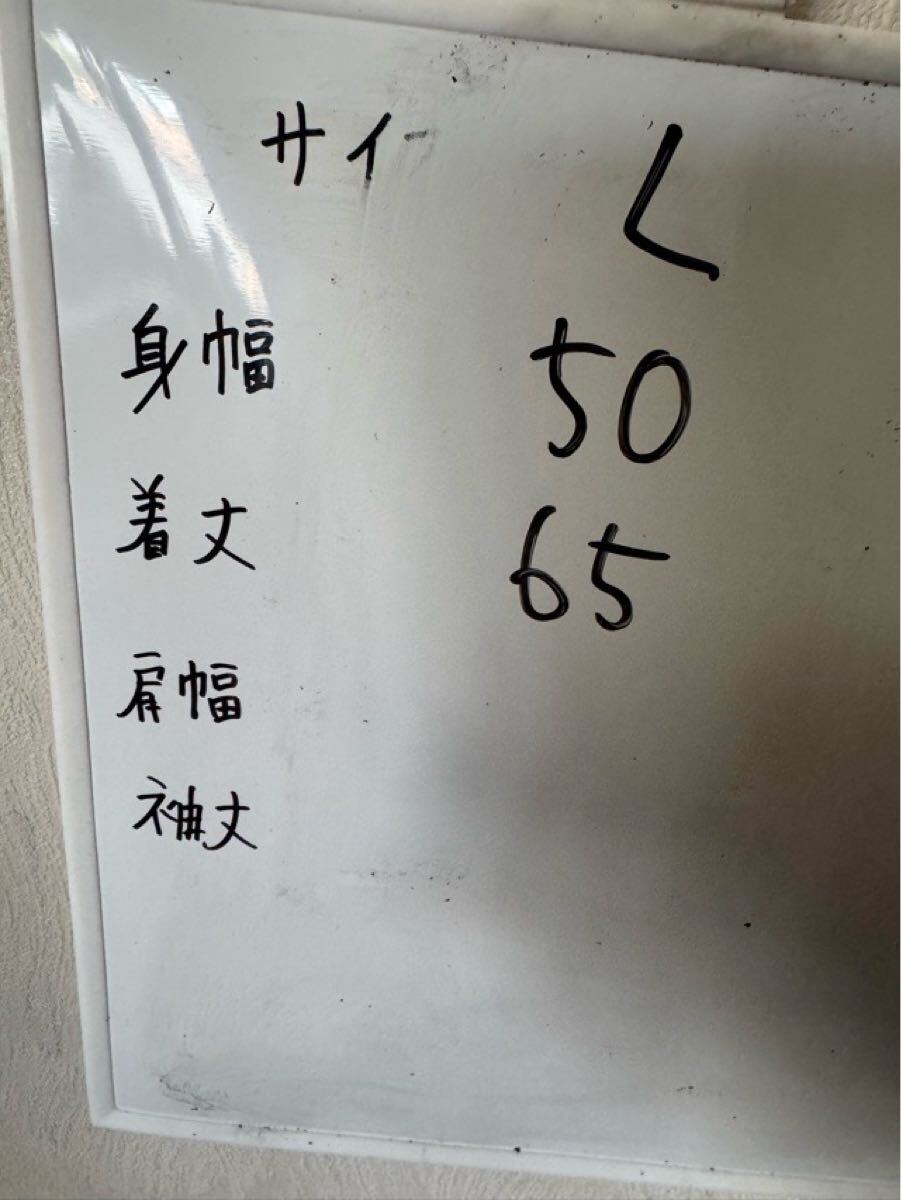 サイ L
身幅 50
着丈 65
肩幅
袖丈